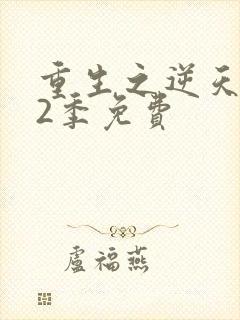 重生之逆天
2季免費
盧福燕